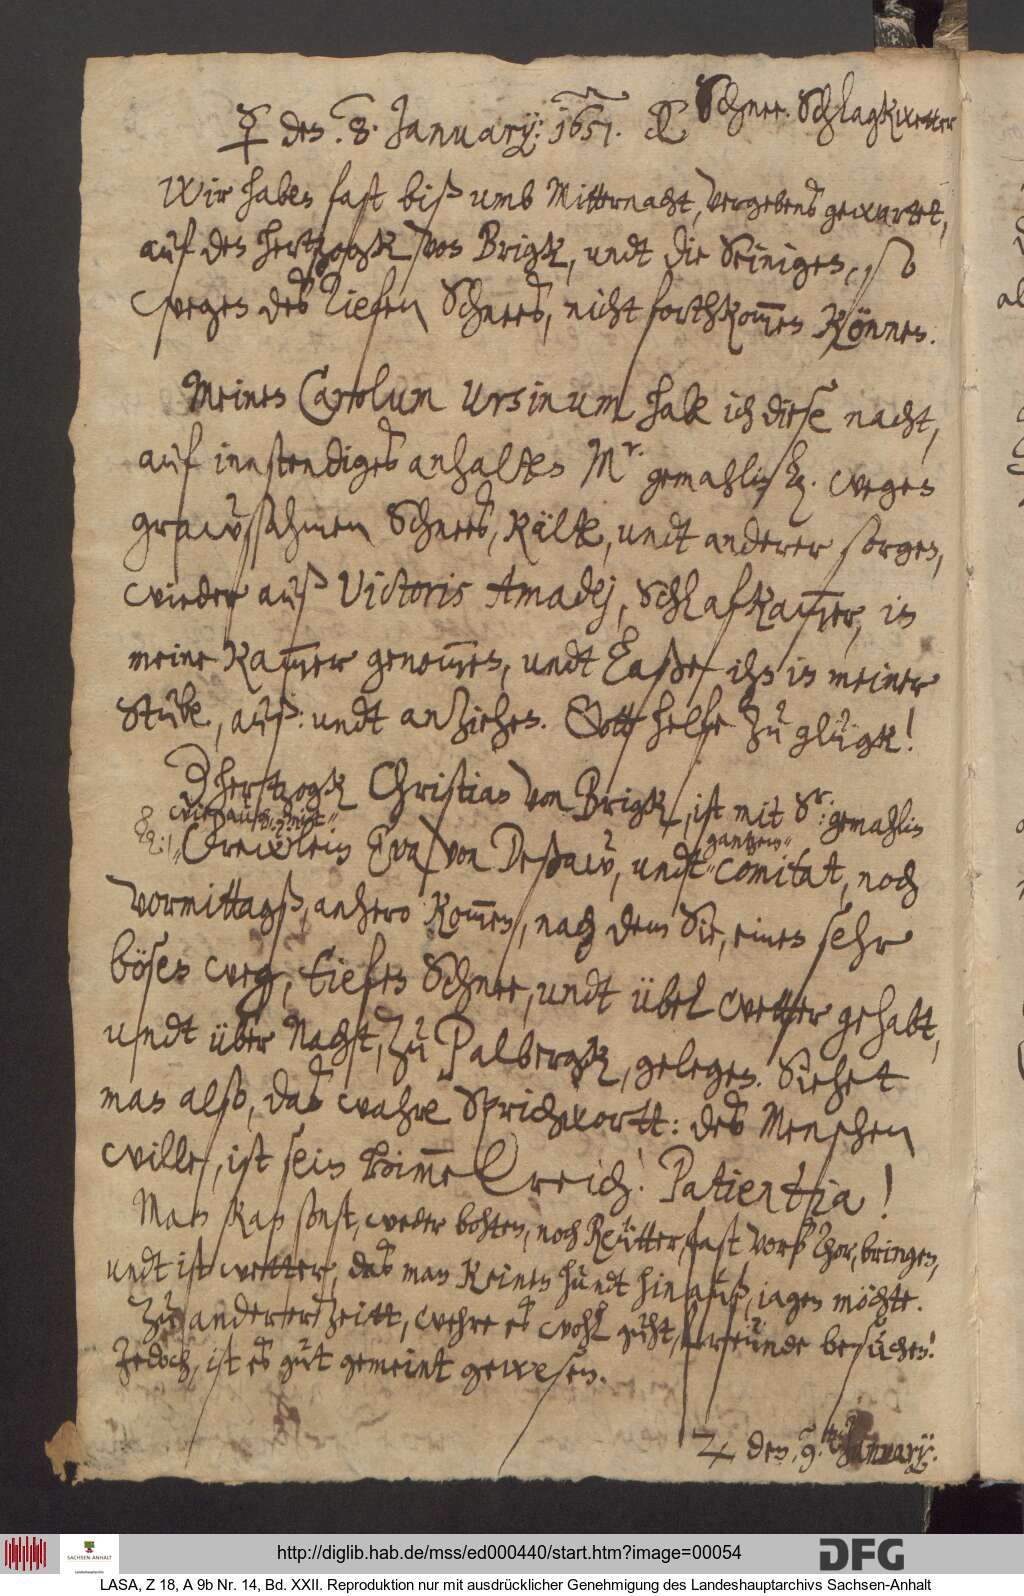 ☿ den. 8. January: 1651. Schnee. Schlagkwetter
Wir haben fast biß umb Mitternacht, vergebens gewartet,
auf den Hertzogk von Brigk, undt die Seinigen, so
wegen des Tiefen Schnees, nicht forthkom̅en Können.
Meinen Carolum Ursinum habe ich diese nacht,
auf innstendiges anhalten Mr. gemahlin wegen
grawsahmen Schnees, Kälte, undt anderer sorgen,
wieder auß Victoris Amadej, Schlafkam̅er, in
meine Kam̅er genom̅en, undt Laße ihn in meiner
Stube, auß: undt anziehen. Gott helfe zu glügk!
Hertzogk Christian von Brigk, ist mit Sr: gemahlin
wie auch mitt gantzem
Frewlein Eva von Deßaw, undt comitat, noch
vormittagß, anhero Kom̅en, nach dem Sie, einen sehr
bösen weg, tiefen Schnee, undt übel wetter gehabt,
undt über Nacht, zu Palbergk, gelegen. Siehet
man also, das wahre Sprichwortt: des Menschen
wille, ist sein Him̅elreich! Patientia!
Man kan sonst, weder bohten, noch Reütter, fast vorß Thor, bringen,
undt ist wetter, das man Keinen hundt hinauß, jagen möchte.
Zu anderer Zeitt, wehre es wohl guht, freünde besuchen!
Jedoch, ist es gut gemeint gewesen.
♃ den. 9. January:
SACHSEN-ANHALT
http://diglib.hab.de/mss/ed000440/start.htm?image=00054
DFG
LASA, Z 18, A 9b Nr. 14, Bd. XXII. Reproduktion nur mit ausdrücklicher Genehmigung des Landeshauptarchivs Sachsen-Anhalt